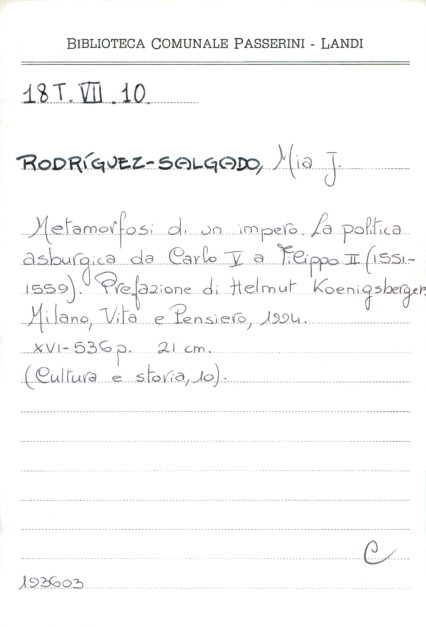 BIBLIOTECA COMUNALE PASSERINI - LANDI
18T.VII.10
RODRÍGUEZ-SALGADO, Mia J.
Metamorfosi di un impero. La politica
asburgica da Carlo V a Filippo II (1551-
1559). Prefazione di Helmut Koenigsberger
Milano, Vita e Pensiero, 1994.
XVI-536 p. 21 cm.
(Cultura e storia, 10).
C
193603